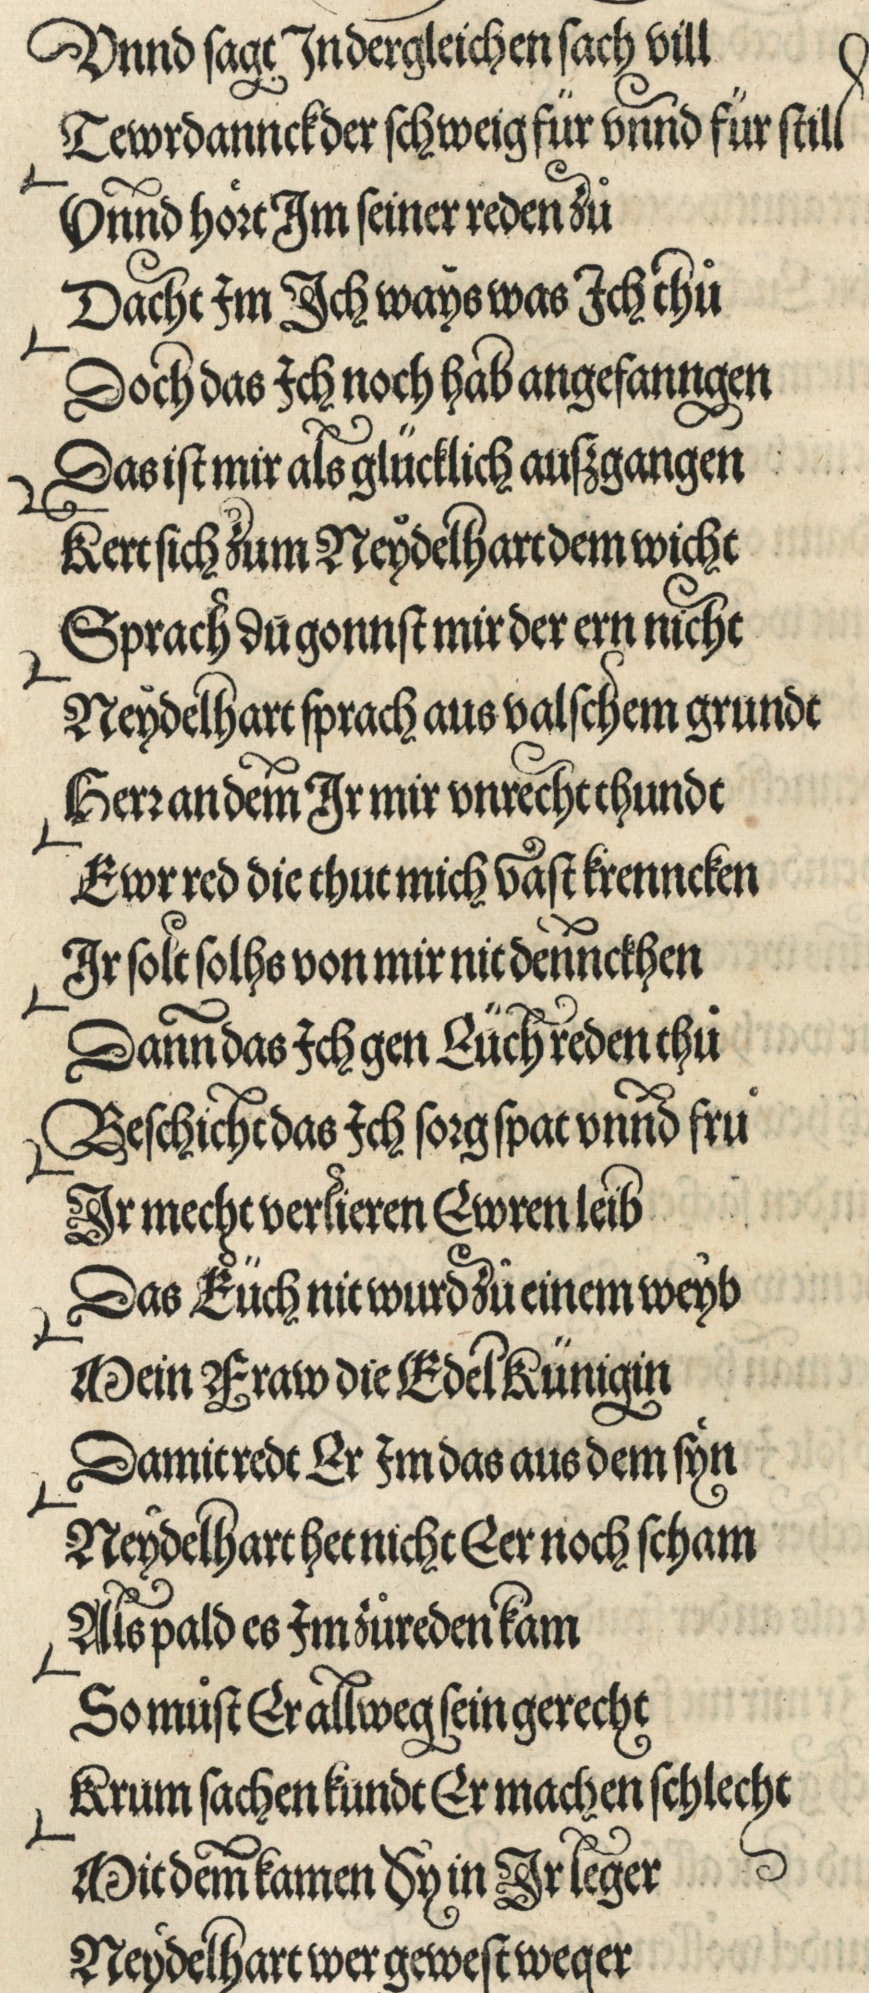 Vnnd sagt In dergleichen sach vill
Tewrdannck der schweig für vnnd für still
Vnnd hört Im seiner reden zů
Dacht Im Ich wayß was Ich thů
Doch das Ich noch hab angefanngen
Das ist mir als glücklich außgangen
Kert sich zum Neydelhart dem wicht
Sprach du gonnst mir der ern nicht
Neydelhart sprach aus valschem grundt
Herr an dem Ir mir vnrecht thundt
Ewr red die thut mich vast krenncken
Ir solt solhs von mir nit dennckhen
Dann das Ich gen Eüch reden thů
Beschicht das Ich sorg spat vnnd frů
Ir mecht verlieren Ewren leib
Das Eüch nit wurd zů einem weyb
Mein Fraw die Edel Künigin
Damit redt Er Im das aus dem syn
Neydelhart het nicht Eer noch scham
Als pald es Im zů reden kam
So můst Er allweg sein gerecht
Krum sachen kundt Er machen schlecht
Mit dem kamen Sy in Ir leger
Neydelhart wer gewest weger